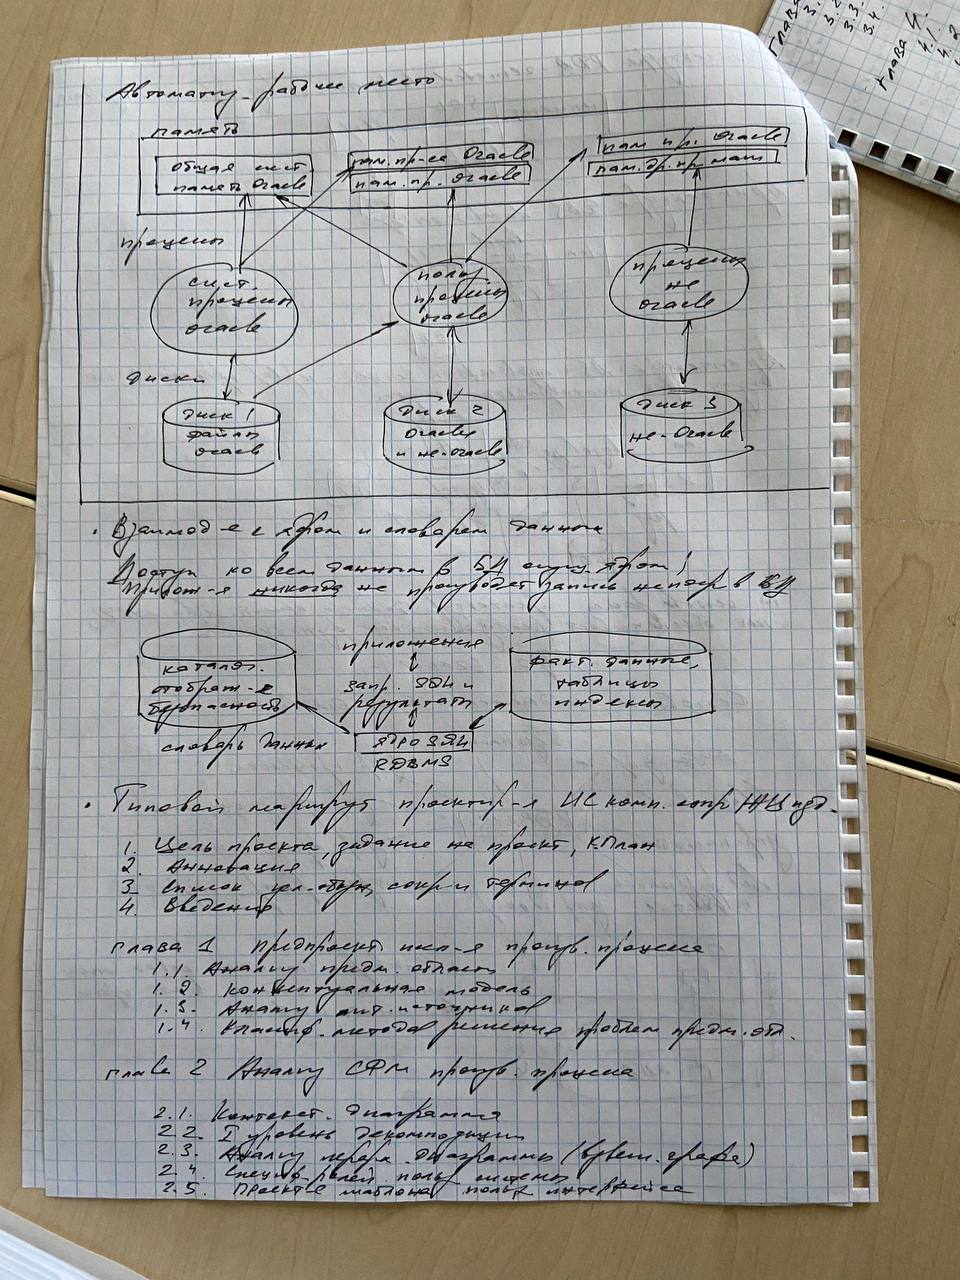 Автоматиз. рабочее место
память
общая сист. память Oracle
пам. пр-са Oracle
пам. пр. Oracle
пам пр. Oracle
пам. др. пр. маш
процессы
сист. процессы oracle
польз процессы oracle
процессы не oracle
диски
диск 1
файлы oracle
диск 2
Oracle и не-oracle
диск 3
не-Oracle
· Взаимод-е с ядром и словарем данных
Доступ ко всем данным в БД осущ. ядром!
Прилож-я никогда не производят запись непоср в БД
каталог. отображ-е безопасность
словарь данных
приложения
запр. ЯЗЫ и результаты
ядро
RDBMS
факт. данные, таблицы индексы
· Типовой маршрут проектир-я ИС комп. сопр ЖЦ изд.
1. Цель проекта, задание на проект, КПлан
2. Аннотация
3 Список усл. обозн, сокр и терминов
4. Введение
глава 1 Предпроект. иссл-я произв. процесса
1.1. Анализ предм. области
1.2. концептуальная модель
1.3. Анализ лит. источников
1.4. Классиф. методов решения проблем предм. обл.
глава 2 Анализ СФМ произв. процесса
2.1. Контекст. диаграмма
2.2. I уровень декомпозиции
2.3. Анализ иерарх. диаграммы (взвеш. графа)
2.4. Специф. ролей польз системы
2.5. Проект-е шаблона польз интерфейса
глава
3.4.
глава 4.
4.1
4.2